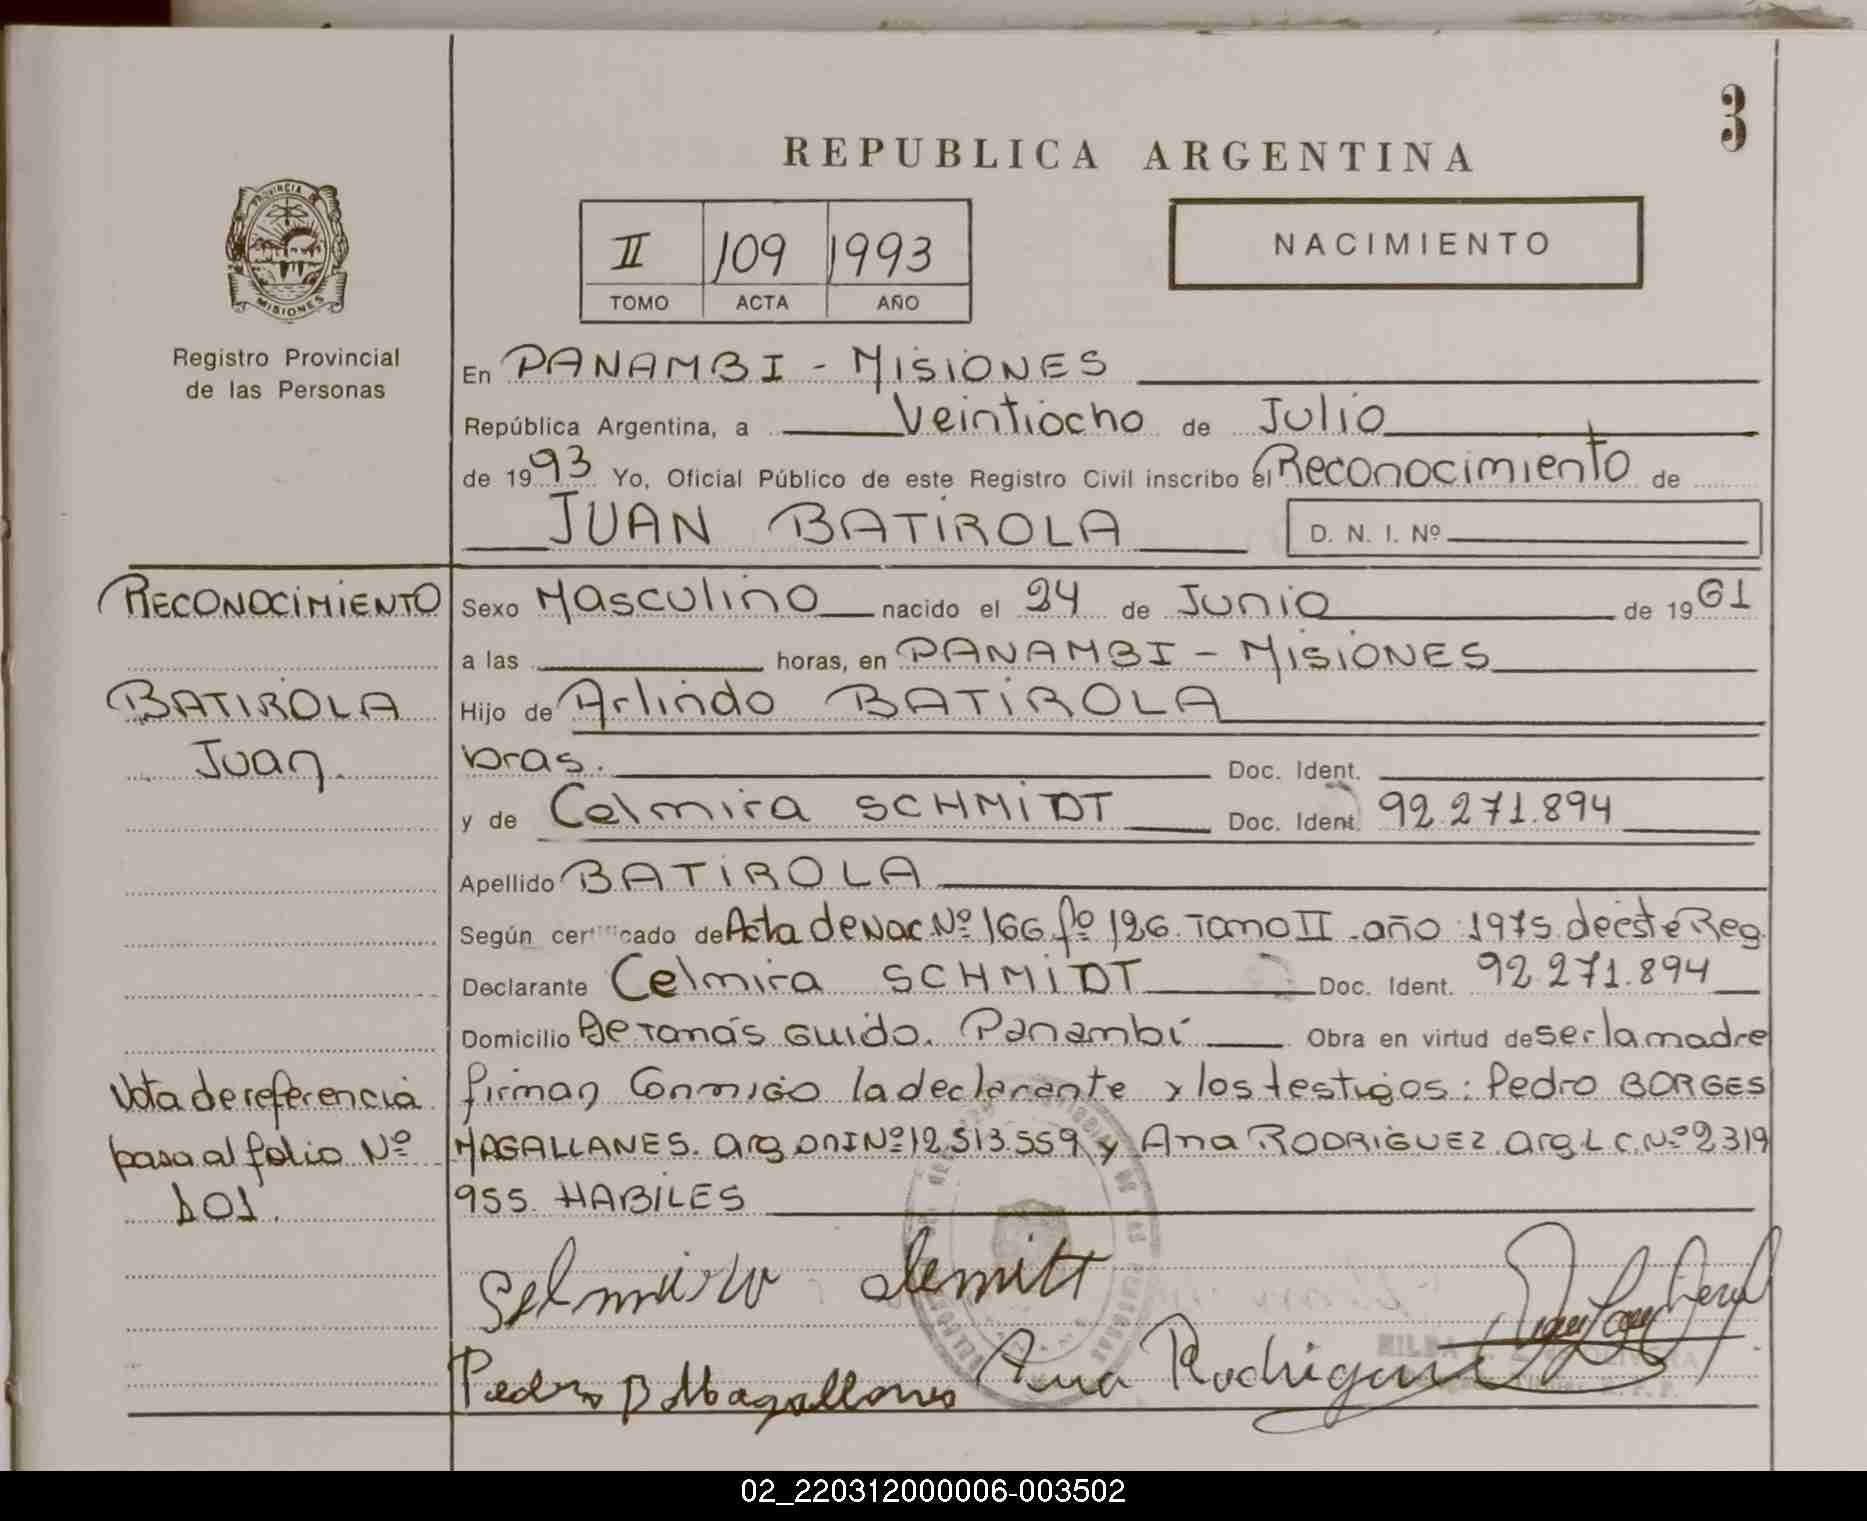 3
REPUBLICA ARGENTINA
PROVINCIA DE
MISIONES
II 109 1993
TOMO ACTA AÑO
NACIMIENTO
Registro Provincial
de las Personas
En PANAMBI - MISIONES
República Argentina, a Veintiocho de Julio
de 1993 Yo, Oficial Público de este Registro Civil inscribo el Reconocimiento de
JUAN BATIROLA D. N. I. Nº
RECONOCIMIENTO
BATIROLA
Juan
Sexo Masculino nacido el 24 de Junio de 1961
a las horas, en PANAMBI - MISIONES
Hijo de Arlindo BATIROLA
bras. Doc. Ident.
y de Celmira SCHMIDT Doc. Ident. 92.271.894
Apellido BATIROLA
Según certificado de Acta de Nac. Nº 166 fº 126 Tomo II año 1975 de este Reg.
Declarante Celmira SCHMIDT Doc. Ident. 92.271.894
Domicilio Be Tomás Guido. Panambí Obra en virtud de ser la madre
Nota de referencia
pasa al folio Nº
101.
firman Conmigo la declarante y los testigos: Pedro BORGES
MAGALLANES. arg DNI Nº 12.513.559 y Ana RODRIGUEZ. arg L.C. Nº 2319
955. HABILES
Selmira
Pedro B Magallanes Ana Rodrigue
HILDA
02_220312000006-003502